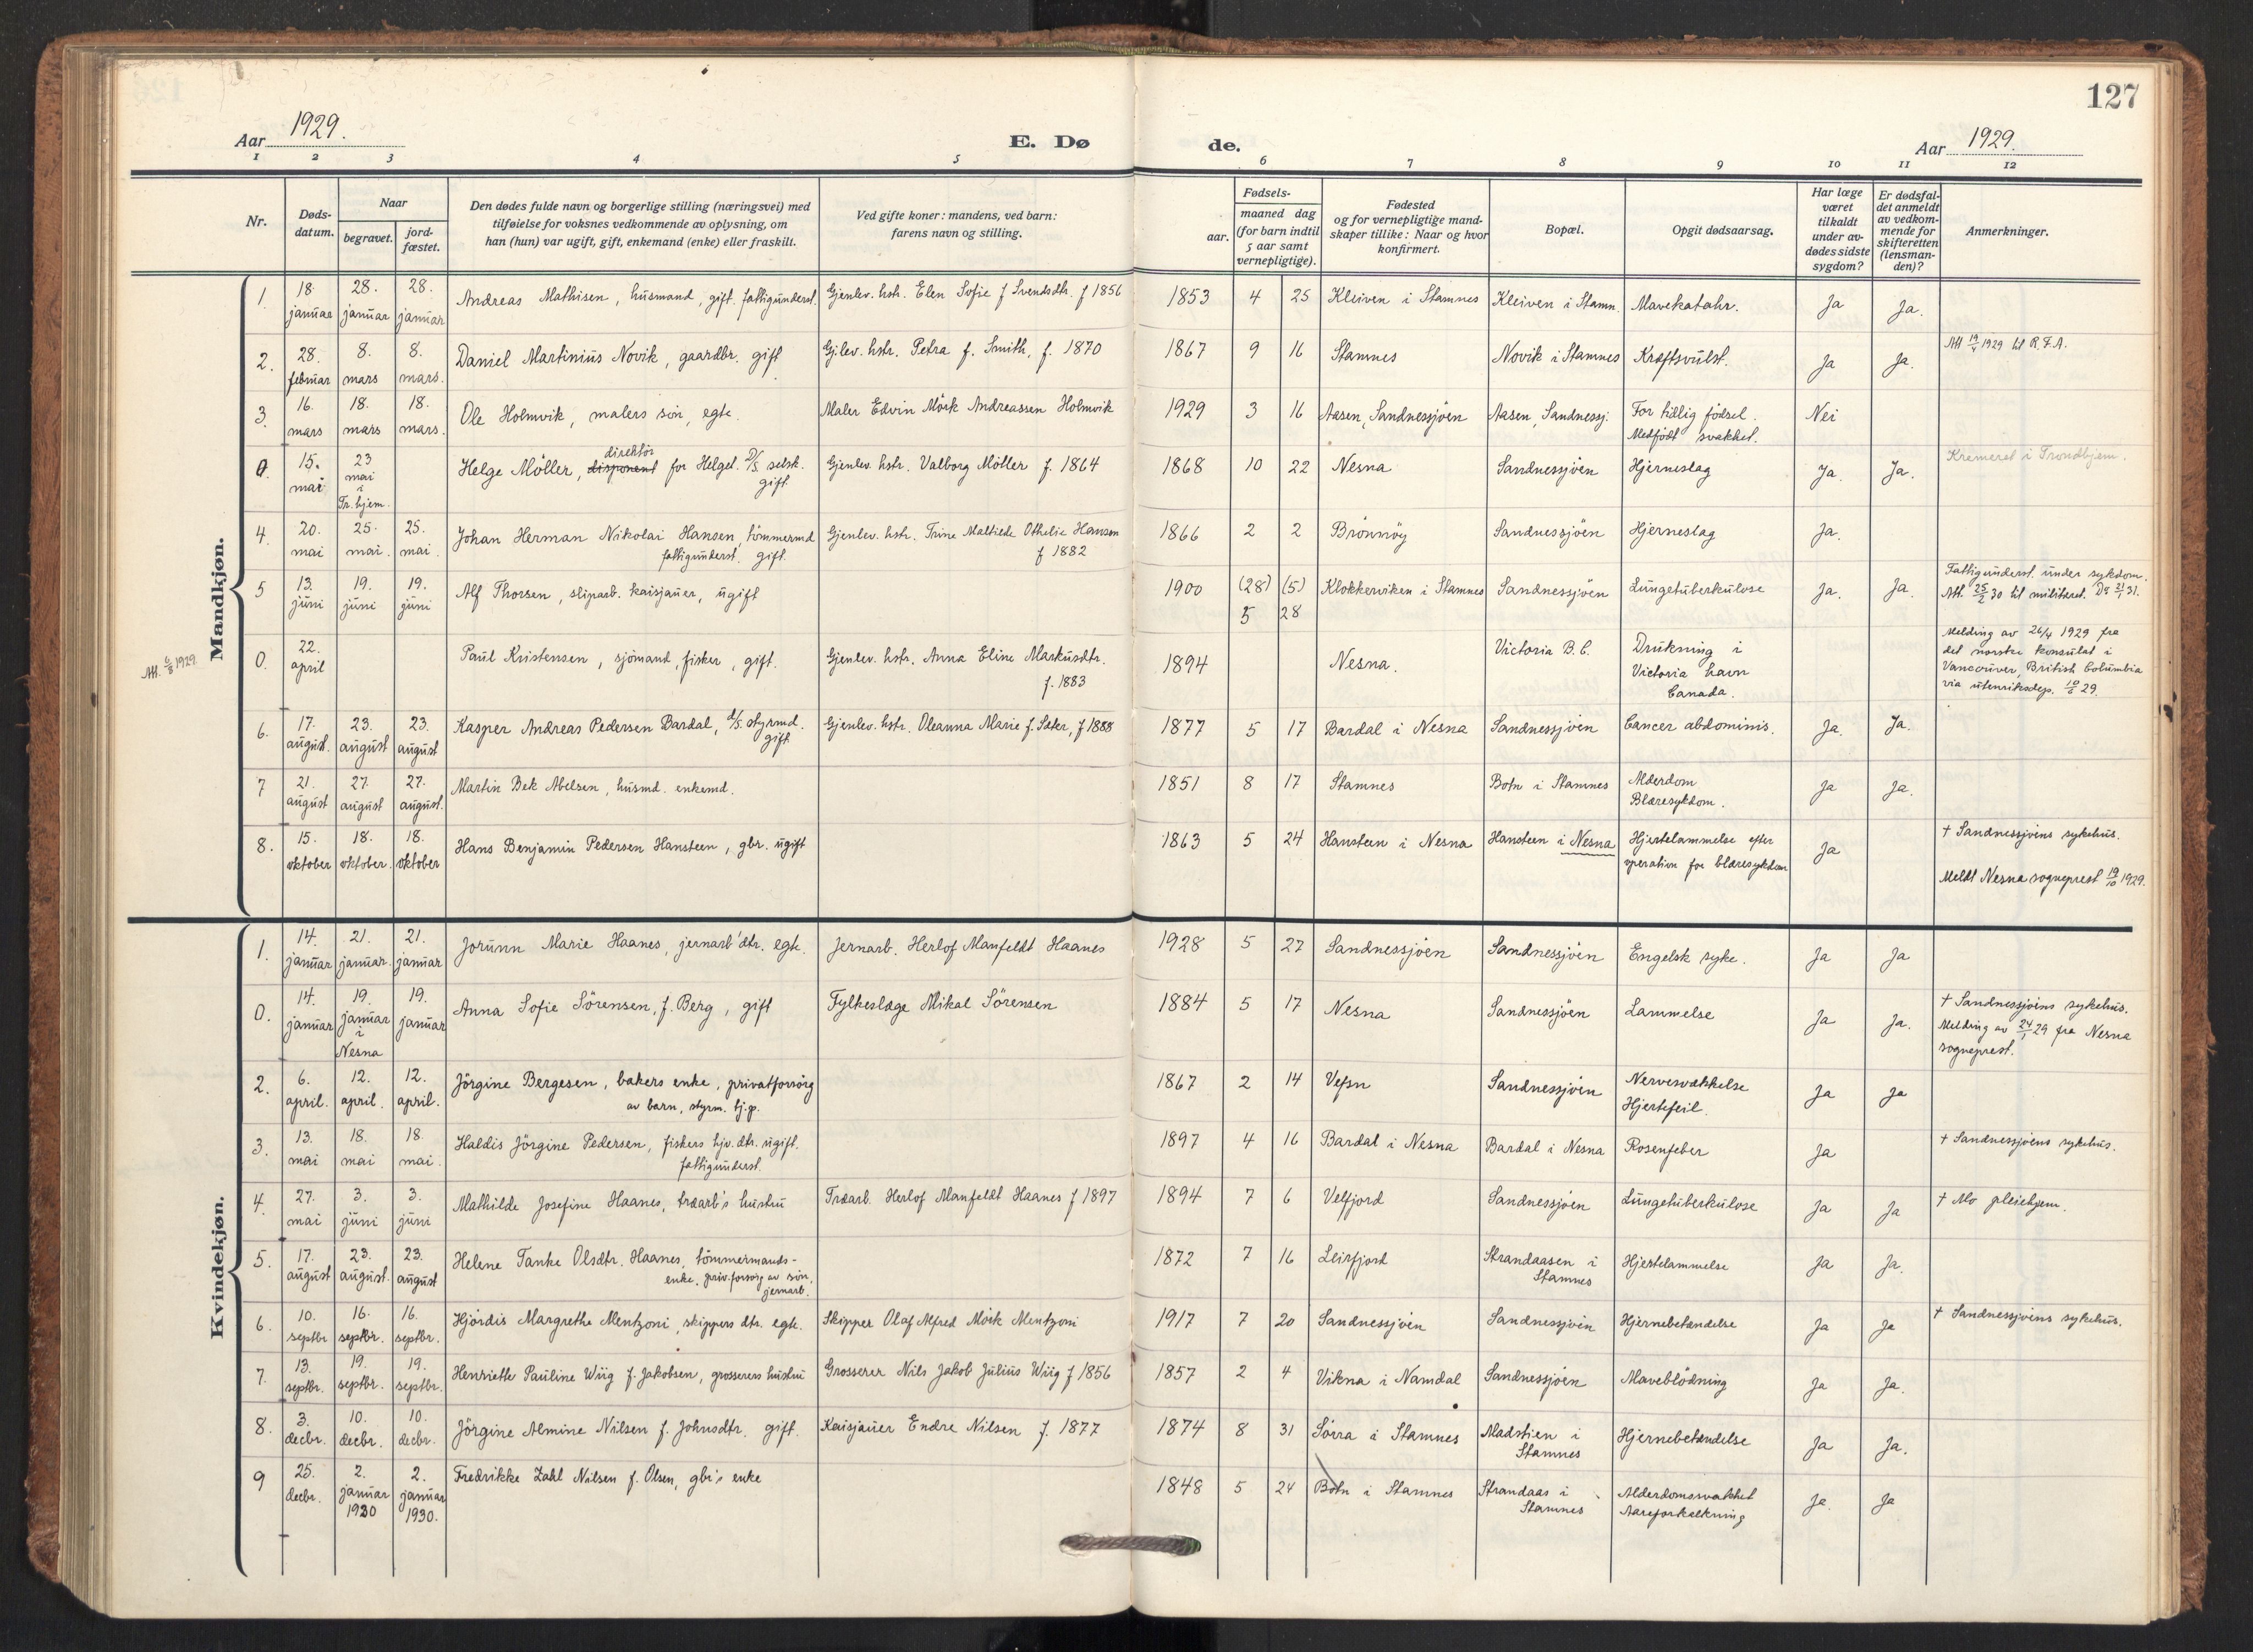 127
Aar 1929.
E. Dø
de.
Aar 1929.
1 2 3 4 5 6 7 8 9 10 11 12
Nr.
Døds-
datum.
Naar
begravet.
jord-
fæstet.
Den dødes fulde navn og borgerlige stilling (næringsvei) med
tilføielse for voksnes vedkommende av oplysning, om
han (hun) var ugift, gift, enkemand (enke) eller fraskilt.
Ved gifte koner: mandens, ved barn:
farens navn og stilling.
Fødsels-
aar.
maaned dag
(for barn indtil
5 aar samt
vernepligtige).
Fødested
og for vernepligtige mand-
skaper tillike: Naar og hvor
konfirmert.
Bopæl.
Opgit dødsaarsag.
Har læge
været
tilkaldt
under av-
dødes sidste
sygdom?
Er dødsfal-
det anmeldt
av vedkom-
mende for
skifteretten
(lensman-
den)?
Anmerkninger.
Mandkjøn.
1. 18. januar 28. januar 28. januar Andreas Mathisen, husmand, gift. fattigunderst. Gjenlev. hstr. Elen Sofie f Svendsdtr. f 1856 1853 4 25 Kleiven i Stamnes Kleiven i Stamn. Mavekatahr. Ja Ja.
2. 28. februar 8. mars 8. mars. Daniel Martinius Novik, gaardbr. gift Gjlev. hstr. Petra f. Smith, f. 1870 1867 9 16 Stamnes Novik i Stamnes Kræftsvulst. Ja Ja. Att 19/4 1929 til R.F.A.
3. 16. mars 18. mars 18. mars. Ole Holmvik, malers søn, egte. Maler Edvin Mörk Andreassen Holmvik 1929 3 16 Aasen, Sandnessjöen Aasen, Sandnessj. For tidlig födsel.
Medfödt svakhet. Nei
0. 15. mai 23 mai i Tr.hjem. Helge Möller, disponent direktör for Helgel. D/S selsk.
gift. Gjenlev. hstr. Valborg Möller f. 1864 1868 10 22 Nesna Sandnessjöen Hjerneslag Ja. Ja. Kremeret i Trondhjem.
4. 20. mai 25. mai. 25. mai. Johan Herman Nikolai Hansen, tömmermd
fattigunderst. gift. Gjenlev. hstr. Trine Mathilde Othelie Hansen
f 1882 1866 2 2 Brönnöy Sandnessjöen Hjerneslag Ja.
5 13. juni 19. juni 19. juni Alf Thorsen, sliparb. kaisjauer, ugift 1900 (28) (5)
5 28 Klokkerviken i Stamnes Sandnessjöen Lungetuberkulose Ja. Ja. Fattigunderst. under sykdom.
Att. 25/2 30 til militæret. Do 21/1 31.
Att. 6/8 1929.
0. 22. april Paul Kristensen, sjömand, fisker, gift. Gjenlev. hstr. Anna Eline Markusdtr.
f. 1883 1894 Nesna. Victoria B.C. Drukning i
Victoria havn
Canada. Melding av 26/4 1929 fra
det norske konsulat i
Vancouver, British Columbia
via utenriksdep. 10/6 29.
6. 17. august. 23. august 23. august Kasper Andreas Pedersen Bardal, d/s. styrmd.
gift Gjenlev. hstr. Oleanna Marie f. Sæter, f 1888 1877 5 17 Bardal i Nesna Sandnessjöen Cancer abdominis. Ja. Ja.
7 21. august 27. august 27. august. Martin Bek Abelsen, husmd. enkemd. 1851 8 17 Stamnes Botn i Stamnes Alderdom
Blæresykdom. Ja Ja.
8. 15. oktober 18. oktober. 18. oktober Hans Benjamin Pedersen Hansteen, gbr. ugift 1863 5 24 Hansteen i Nesna Hansteen i Nesna Hjertelammelse efter
operation for blæresykdom Ja † Sandnessjöens sykehus.
Meldt Nesna sogneprest 19/10 1929.
Kvindekjøn.
1. 14. januar 21. januar. 21. januar Jorunn Marie Haanes, jernarb'dtr. egte. Jernarb. Herlof Manfeldt Haanes 1928 5 27 Sandnessjöen Sandnessjöen Engelsk syke. Ja Ja
0. 14. januar 19. januar i Nesna 19. januar Anna Sofie Sörensen, f. Berg, gift Fylkeslæge Mikal Sörensen 1884 5 17 Nesna Sandnessjöen Lammelse Ja Ja. † Sandnessjöens sykehus.
Melding av 24/1 29 fra Nesna
sogneprest.
2. 6. april. 12. april. 12. april. Jörgine Bergesen, bakers enke, privatforsörg
av barn, styrm. hj.p. 1867 2 14 Vefsn Sandnessjöen Nervesvækkelse
Hjertefeil. Ja Ja
3. 13. mai 18. mai 18. mai. Haldis Jörgine Pedersen, fiskers hjv. dtr. ugift.
fattigunderst. 1897 4 16 Bardal i Nesna Bardal i Nesna Rosenfeber Ja † Sandnessjöens sykehus.
4. 27. mai 3. juni 3. juni Mathilde Josefine Haanes, træarb's hustru Træarb. Herlof Manfeldt Haanes f 1897 1894 7 6 Velfjord Sandnessjöen Lungetuberkulose Ja Ja † Mo pleiehjem.
5. 17. august 23. august. 23. august Helene Tanke Olsdtr. Haanes, tömmermands-
enke, priv.forsörg av sön,
jernarb. 1872 7 16 Leirfjord Strandaasen i
Stamnes Hjertelammelse Ja Ja.
6. 10. septbr 16. septbr. 16. septbr. Hjördis Margrethe Mentzoni, skippers dtr. egte. Skipper Olaf Alfred Mörk Mentzoni 1917 7 20 Sandnessjöen Sandnessjöen Hjernebetændelse Ja Ja † Sandnessjöens sykehus.
7. 13. septbr. 19. septbr. 19. septbr. Henriette Pauline Wiig f. Jakobsen, grosserers hustru Grosserer Nils Jakob Julius Wiig f 1856 1857 2 4 Vikna i Namdal Sandnessjöen Maveblödning Ja Ja.
8. 3. decbr. 10. decbr. 10. decbr. Jörgine Almine Nilsen f. Johnsdtr. gift. Kaisjauer Endre Nilsen f. 1877 1874 8 31 Sörra i Stamnes Madstien i
Stamnes Hjernebetændelse Ja Ja.
9 25. decbr. 2. januar 1930 2. januar 1930. Fredrikke Zahl Nilsen f. Olsen, gbr's enke 1848 5 24 Botn i Stamnes Strandaas i
Stamnes Alderdomssvakhet
Aareforkalkning Ja. Ja